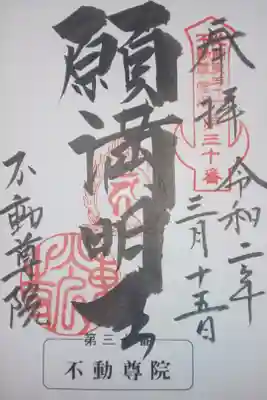 奉拝
令和二年
三月十五日
三十番
願満明王
不動尊院
第三
不動尊院